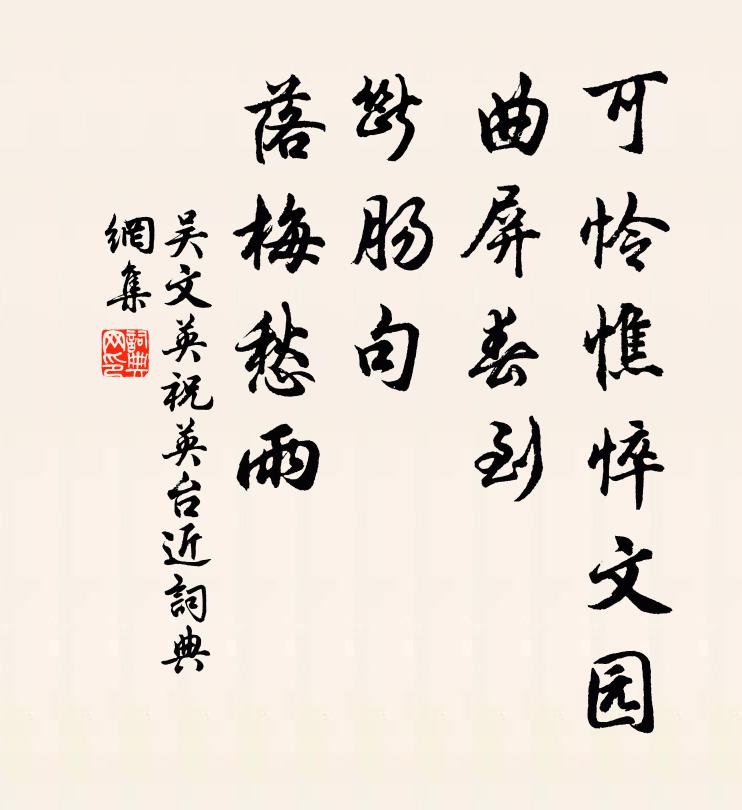 可怜憔悴文园
曲屏春到
断肠句
落梅愁雨
吴文英祝英台近詞典
網集
詞典
网印